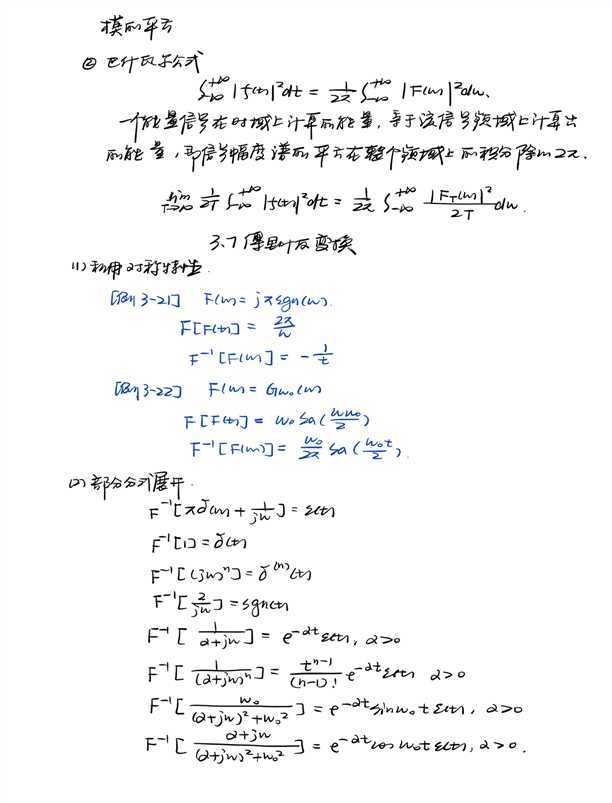 模的平方
② 巴什瓦尔公式
∫_{-∞}^{+∞} |f(t)|²dt = 1/2π ∫_{-∞}^{+∞} |F(w)|²dw.
一个能量信号在时域上计算的能量,等于该信号频域上计算出
的能量,即信号幅度谱的平方在整个频域上的积分除以2π.
lim_{T→∞} 1/2T ∫_{-∞}^{+∞} |f(t)|²dt = 1/2π ∫_{-∞}^{+∞} |F_T(w)|²/2T dw.
3.7 傅里叶反变换
(1) 利用对称特性.
[例3-21] F(w) = jπsgn(w).
F[F(t)] = 2π/w
F⁻¹[F(w)] = -1/t
[例3-22] F(w) = Gw₀(w)
F[F(t)] = w₀Sa(ww₀/2)
F⁻¹[F(w)] = w₀/2π Sa(w₀t/2).
(2) 部分分式展开.
F⁻¹[πδ(w) + 1/jw] = ε(t)
F⁻¹[1] = δ(t)
F⁻¹[(jw)ⁿ] = δ⁽ⁿ⁾(t)
F⁻¹[2/jw] = sgn(t)
F⁻¹[1/(α+jw)] = e^{-αt}ε(t), α>0
F⁻¹[1/(α+jw)ⁿ] = t^{n-1}/(n-1)! e^{-αt}ε(t) α>0
F⁻¹[w₀/((α+jw)²+w₀²)] = e^{-αt}sinw₀t ε(t), α>0
F⁻¹[(α+jw)/((α+jw)²+w₀²)] = e^{-αt}cos w₀t ε(t), α>0.